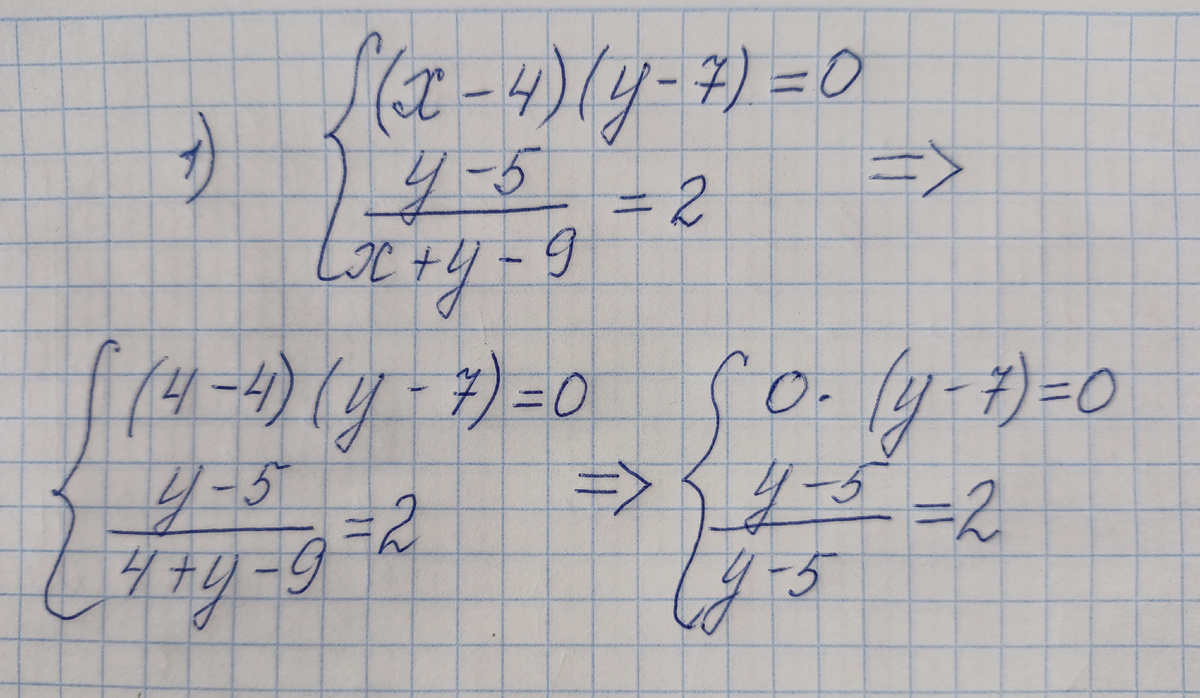 1) { (x - 4)(y - 7) = 0
y - 5 / x + y - 9 = 2 =>
{ (4 - 4)(y - 7) = 0
y - 5 / 4 + y - 9 = 2 =>
{ 0 · (y - 7) = 0
y - 5 / y - 5 = 2